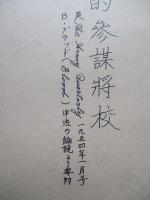 的參謀將校
英 The Army Quarterly 一九五四年一月号
B・ブラッド (Blood) 中佐の論説より要約